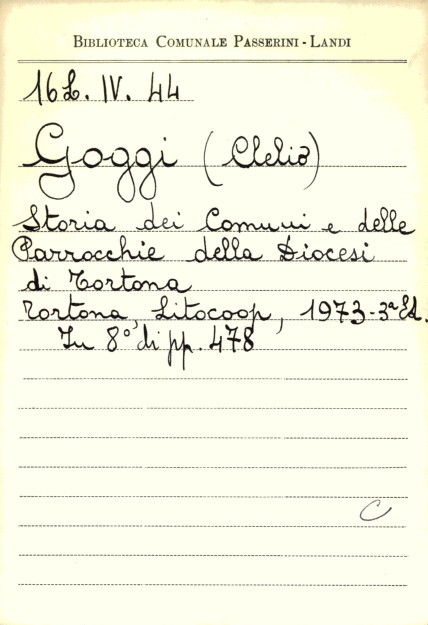 BIBLIOTECA COMUNALE PASSERINI-LANDI
16L. IV. 44
Goggi (Clelio)
Storia dei Comuni e delle
Parrocchie della Diocesi
di Tortona
Tortona, Litocoop, 1973-3ª Ed.
In 8° di pp. 478
C